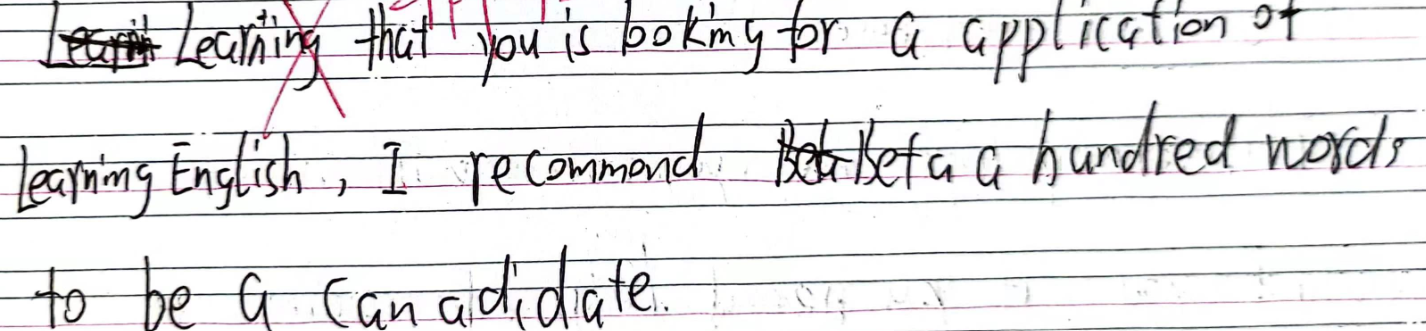 Learning that you is looking for a application of
Learning English, I recommend Beta a hundred words
to be a canadidate.